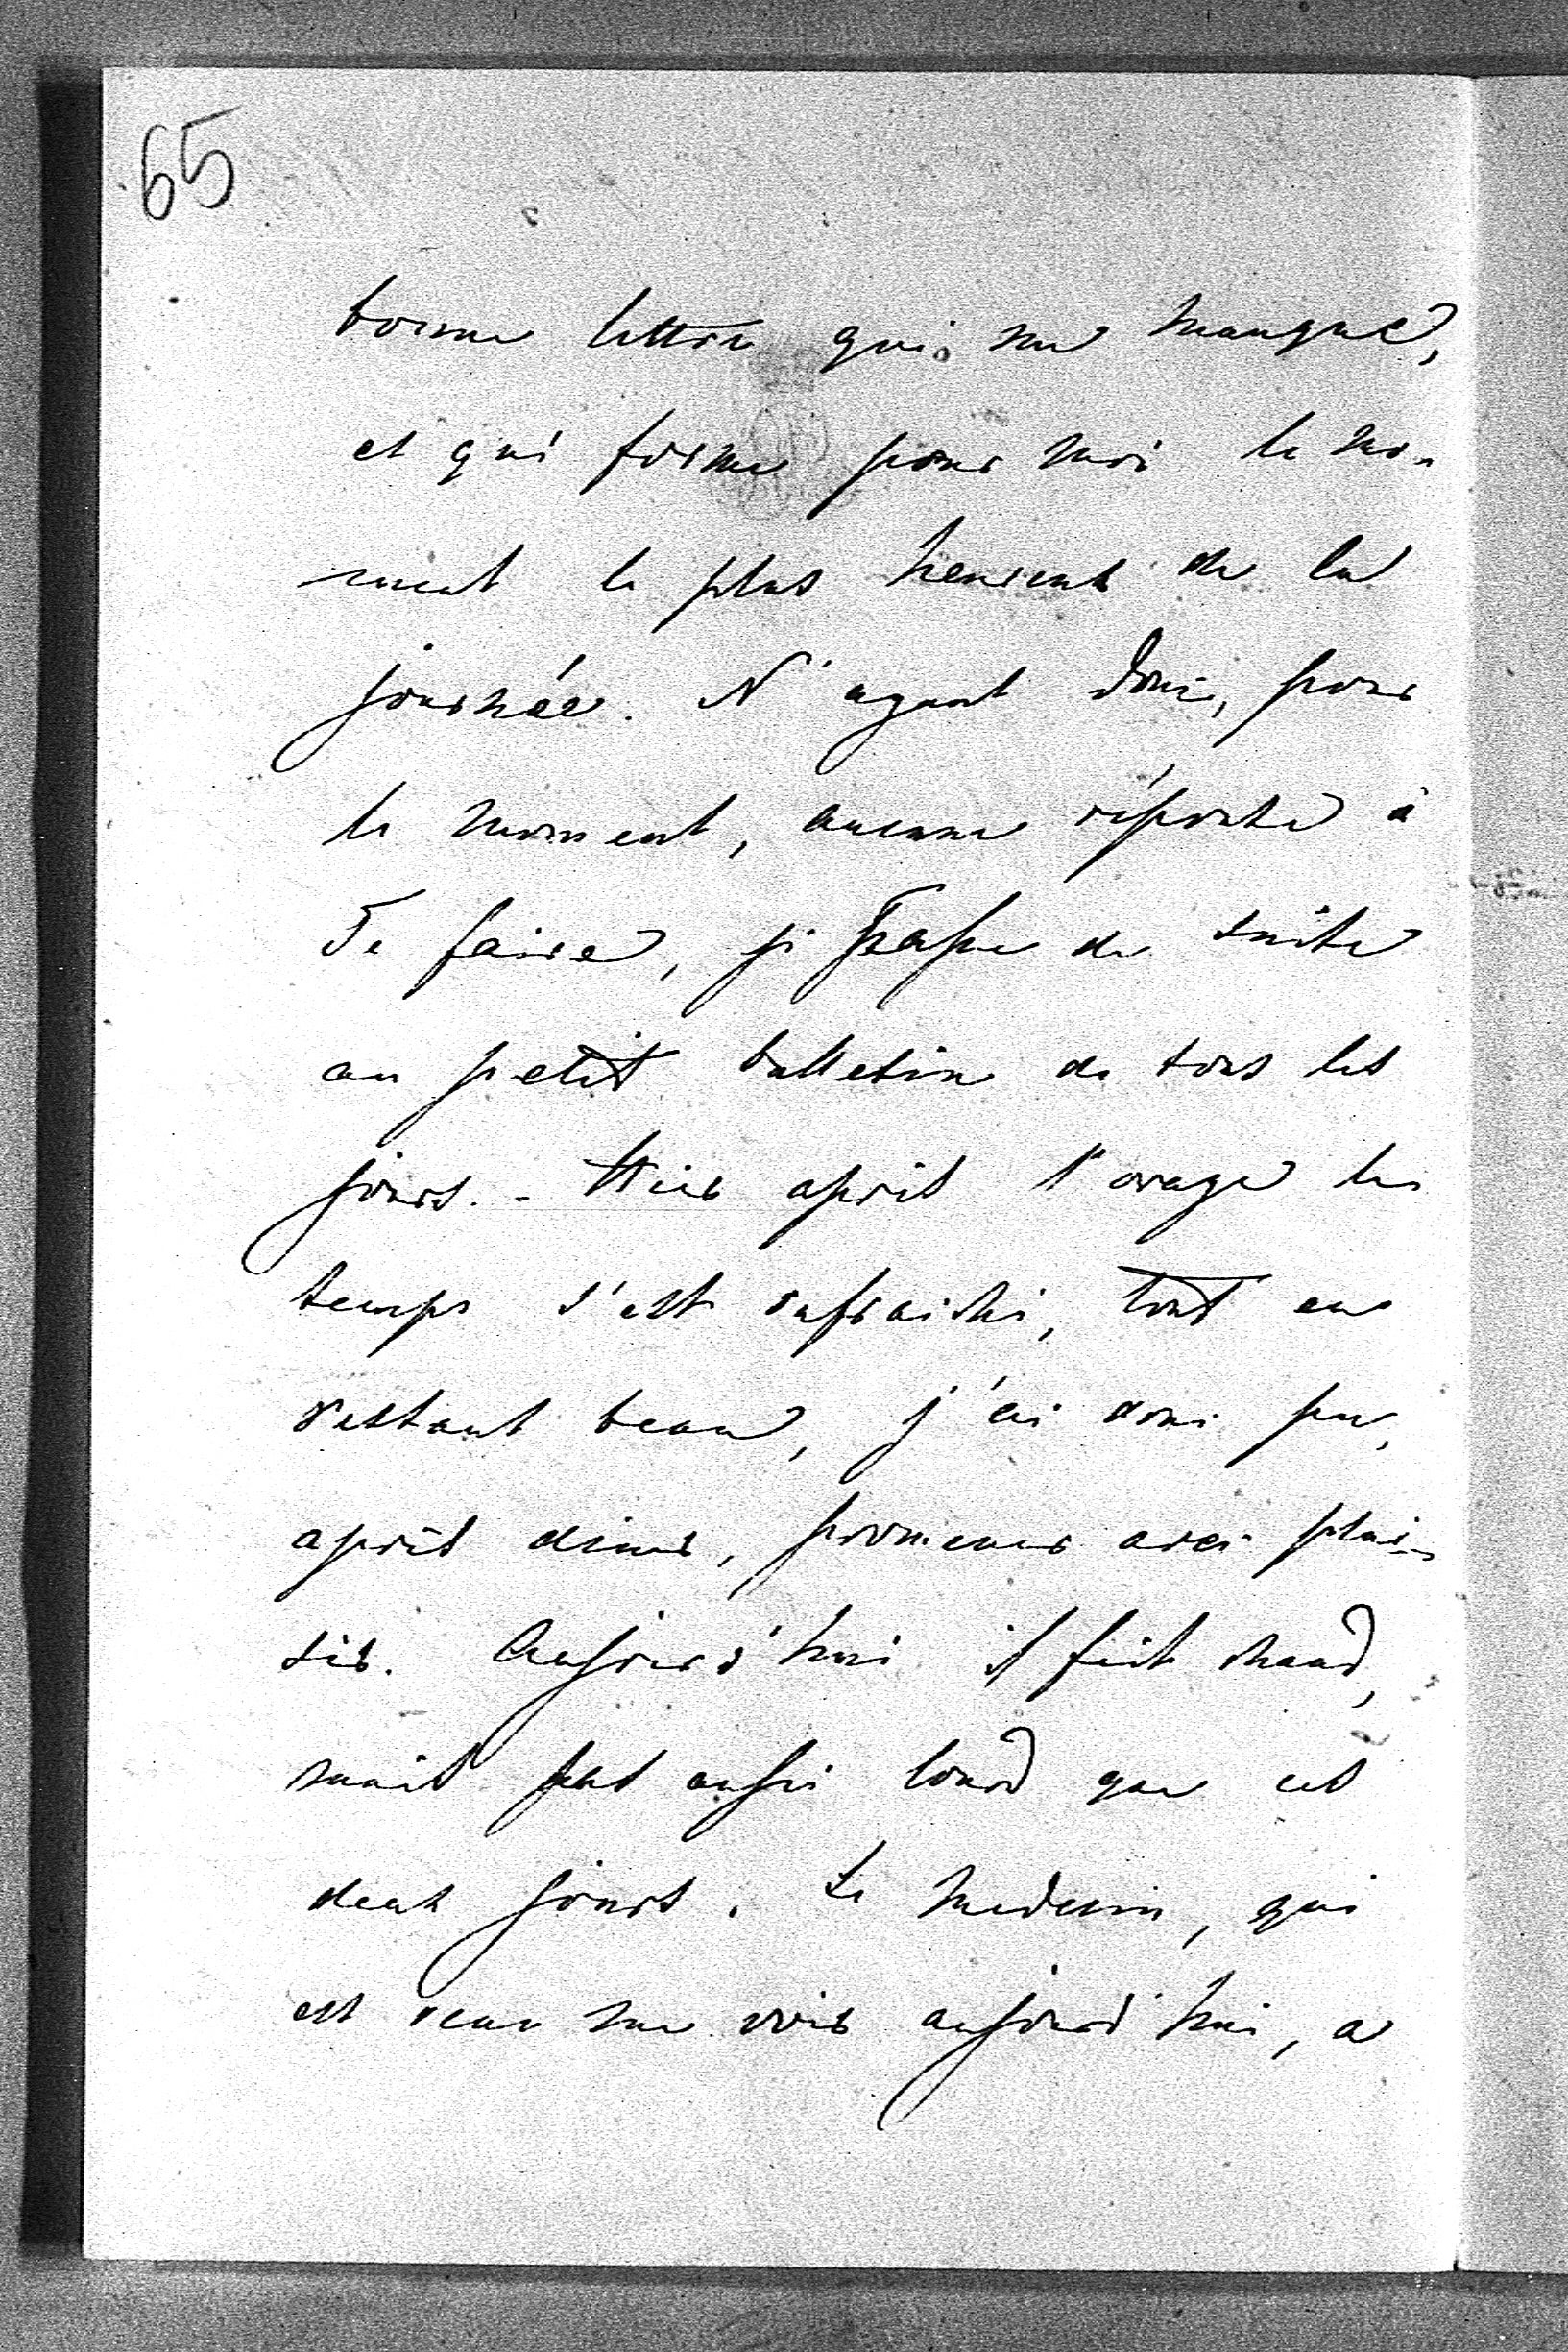 65
bonne lettre qui me manque,
et qui forme pour moi le mo-
ment le plus heureux de la
journée. N'ayant donc, pour
le moment, aucune réponse à
Te faire, je passe de suite
au petit bulletin de tous les
jours. - Hier après l'orage le
temps s'est rafraichi, tout en
restant beau, j'ai donc pu,
après diner, promener avec plai-
sir. Aujourd'hui il fait chaud,
mais pas aussi lourd que ces
deux jours. Le medecin, qui
est venu me voir aujourd'hui, a